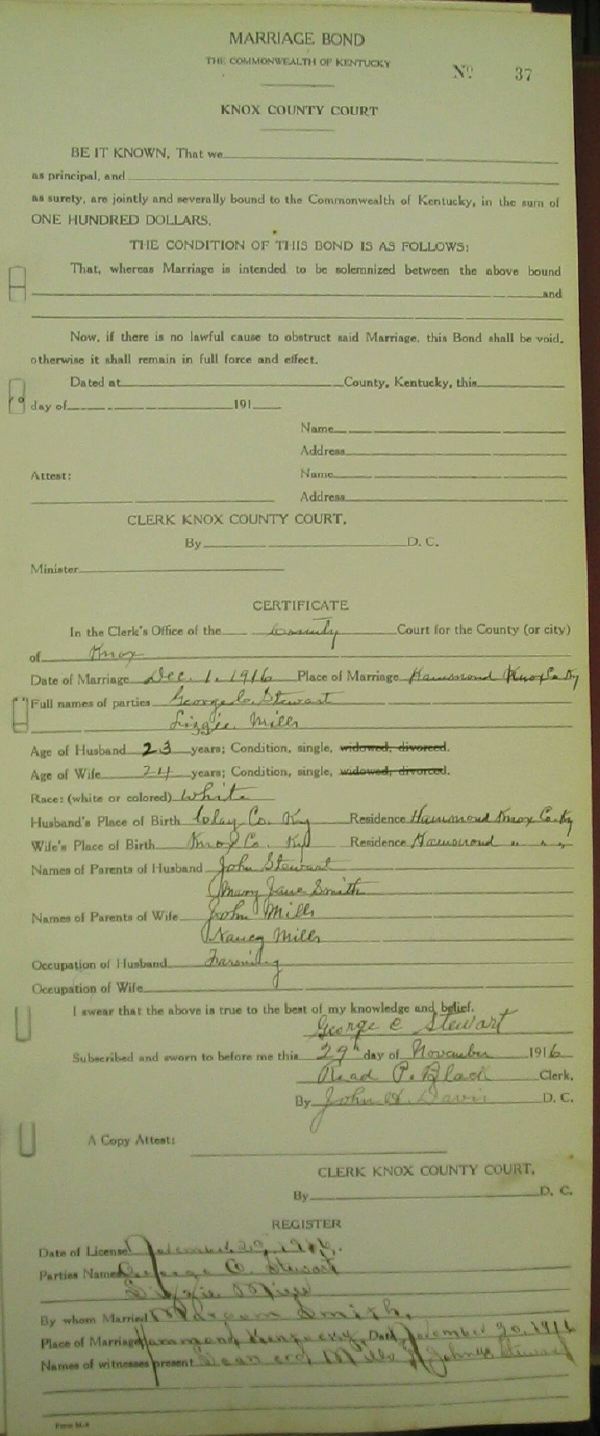 MARRIAGE BOND
THE COMMONWEALTH OF KENTUCKY
No. 37
KNOX COUNTY COURT
BE IT KNOWN, That we
as principal, and
as surety, are jointly and severally bound to the Commonwealth of Kentucky, in the sum of
ONE HUNDRED DOLLARS.
THE CONDITION OF THIS BOND IS AS FOLLOWS:
That, whereas Marriage is intended to be solemnized between the above bound
and
Now, if there is no lawful cause to obstruct said Marriage, this Bond shall be void,
otherwise it shall remain in full force and effect.
Dated at County, Kentucky, this
day of 191
Name
Address
Attest: Name
Address
CLERK KNOX COUNTY COURT.
By D. C.
Minister
CERTIFICATE
In the Clerk's Office of the County Court for the County (or city)
of Knox
Date of Marriage Dec. 1. 1916 Place of Marriage Hammond Knox Co. Ky
Full names of parties George C. Stewart
Lizzie Mills
Age of Husband 23 years; Condition, single, widowed, divorced.
Age of Wife 24 years; Condition, single, widowed, divorced.
Race: (white or colored) White
Husband's Place of Birth Clay Co. Ky Residence Hammond Knox Co. Ky
Wife's Place of Birth Knox Co. Ky Residence Hammond " " "
Names of Parents of Husband John Stewart
Mary Jane Smith
Names of Parents of Wife John Mills
Nancy Mills
Occupation of Husband Farming
Occupation of Wife
I swear that the above is true to the best of my knowledge and belief.
George C Stewart
Subscribed and sworn to before me this 29th day of November 1916
Read P. Black Clerk.
By John H. Davis D. C.
A Copy Attest:
CLERK KNOX COUNTY COURT.
By D. C.
REGISTER
Date of License November 29, 1916.
Parties Names George C. Stewart
Lizzie Mills
By whom Married Smith,
Place of Marriage Hammond Kentucky, Date November 30, 1916
Names of witnesses present Mills & John Stewart
Form M-8